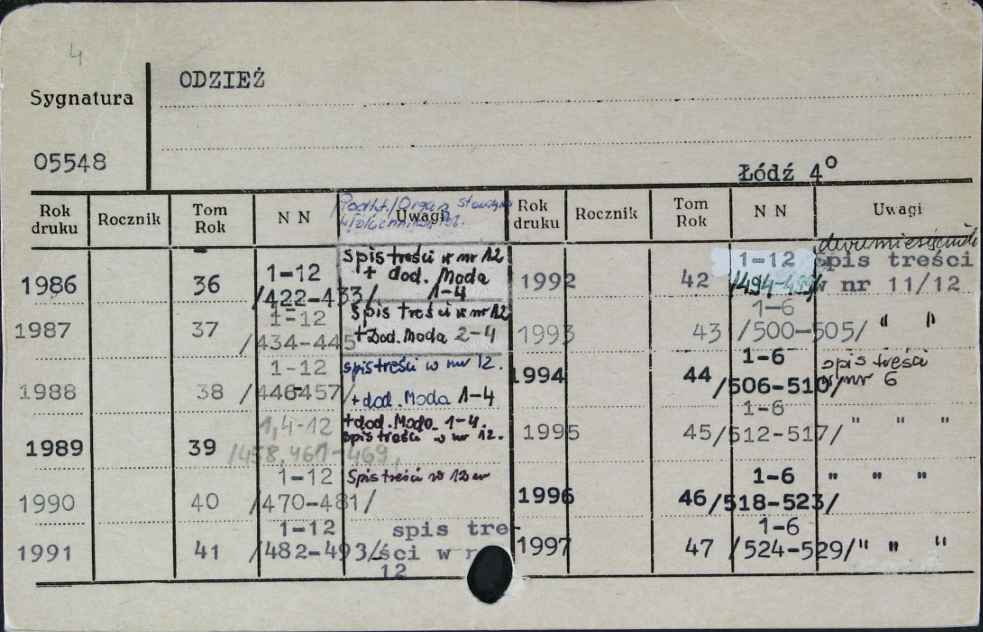 4
ODZIEŻ
Sygnatura
05548
Łódź 4°
Rok druku Rocznik Tom Rok N N Uwagi Rok druku Rocznik Tom Rok N N Uwagi
dwumiesięcznik
1986 36 1-12 /422-433/ spis treści w nr 12 + dod. Moda 1-4
1987 37 1-12 /434-445 spis treści w nr 12 + Dod. Moda 2-4
1988 38 1-12 /446-457/ spis treści w nr 12. + dod. Moda 1-4
1989 39 1,4-12 /458,461-469, + dod. Moda 1-4. spis treści w nr 12.
1990 40 1-12 /470-481/ Spis treści w 12 nr
1991 41 1-12 /482-493/ spis tre-ści w n 12
1992 42 1-12 /494-499/ spis treści w nr 11/12
1993 43 1-6 /500-505/ " "
1994 44 1-6 /506-510/ spis treści w nr 6
1995 45 1-6 /512-517/ " " "
1996 46 1-6 /518-523/ " " "
1997 47 1-6 /524-529/ " " "